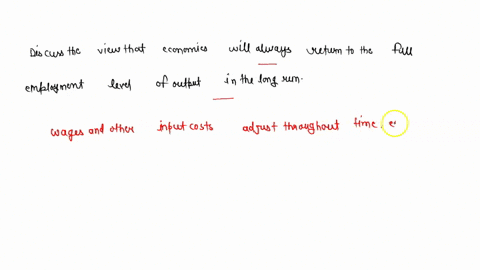 Discuss the view that economies will always return to the full
employment level of output in the long run.
wages and other input costs adjust throughout time. e